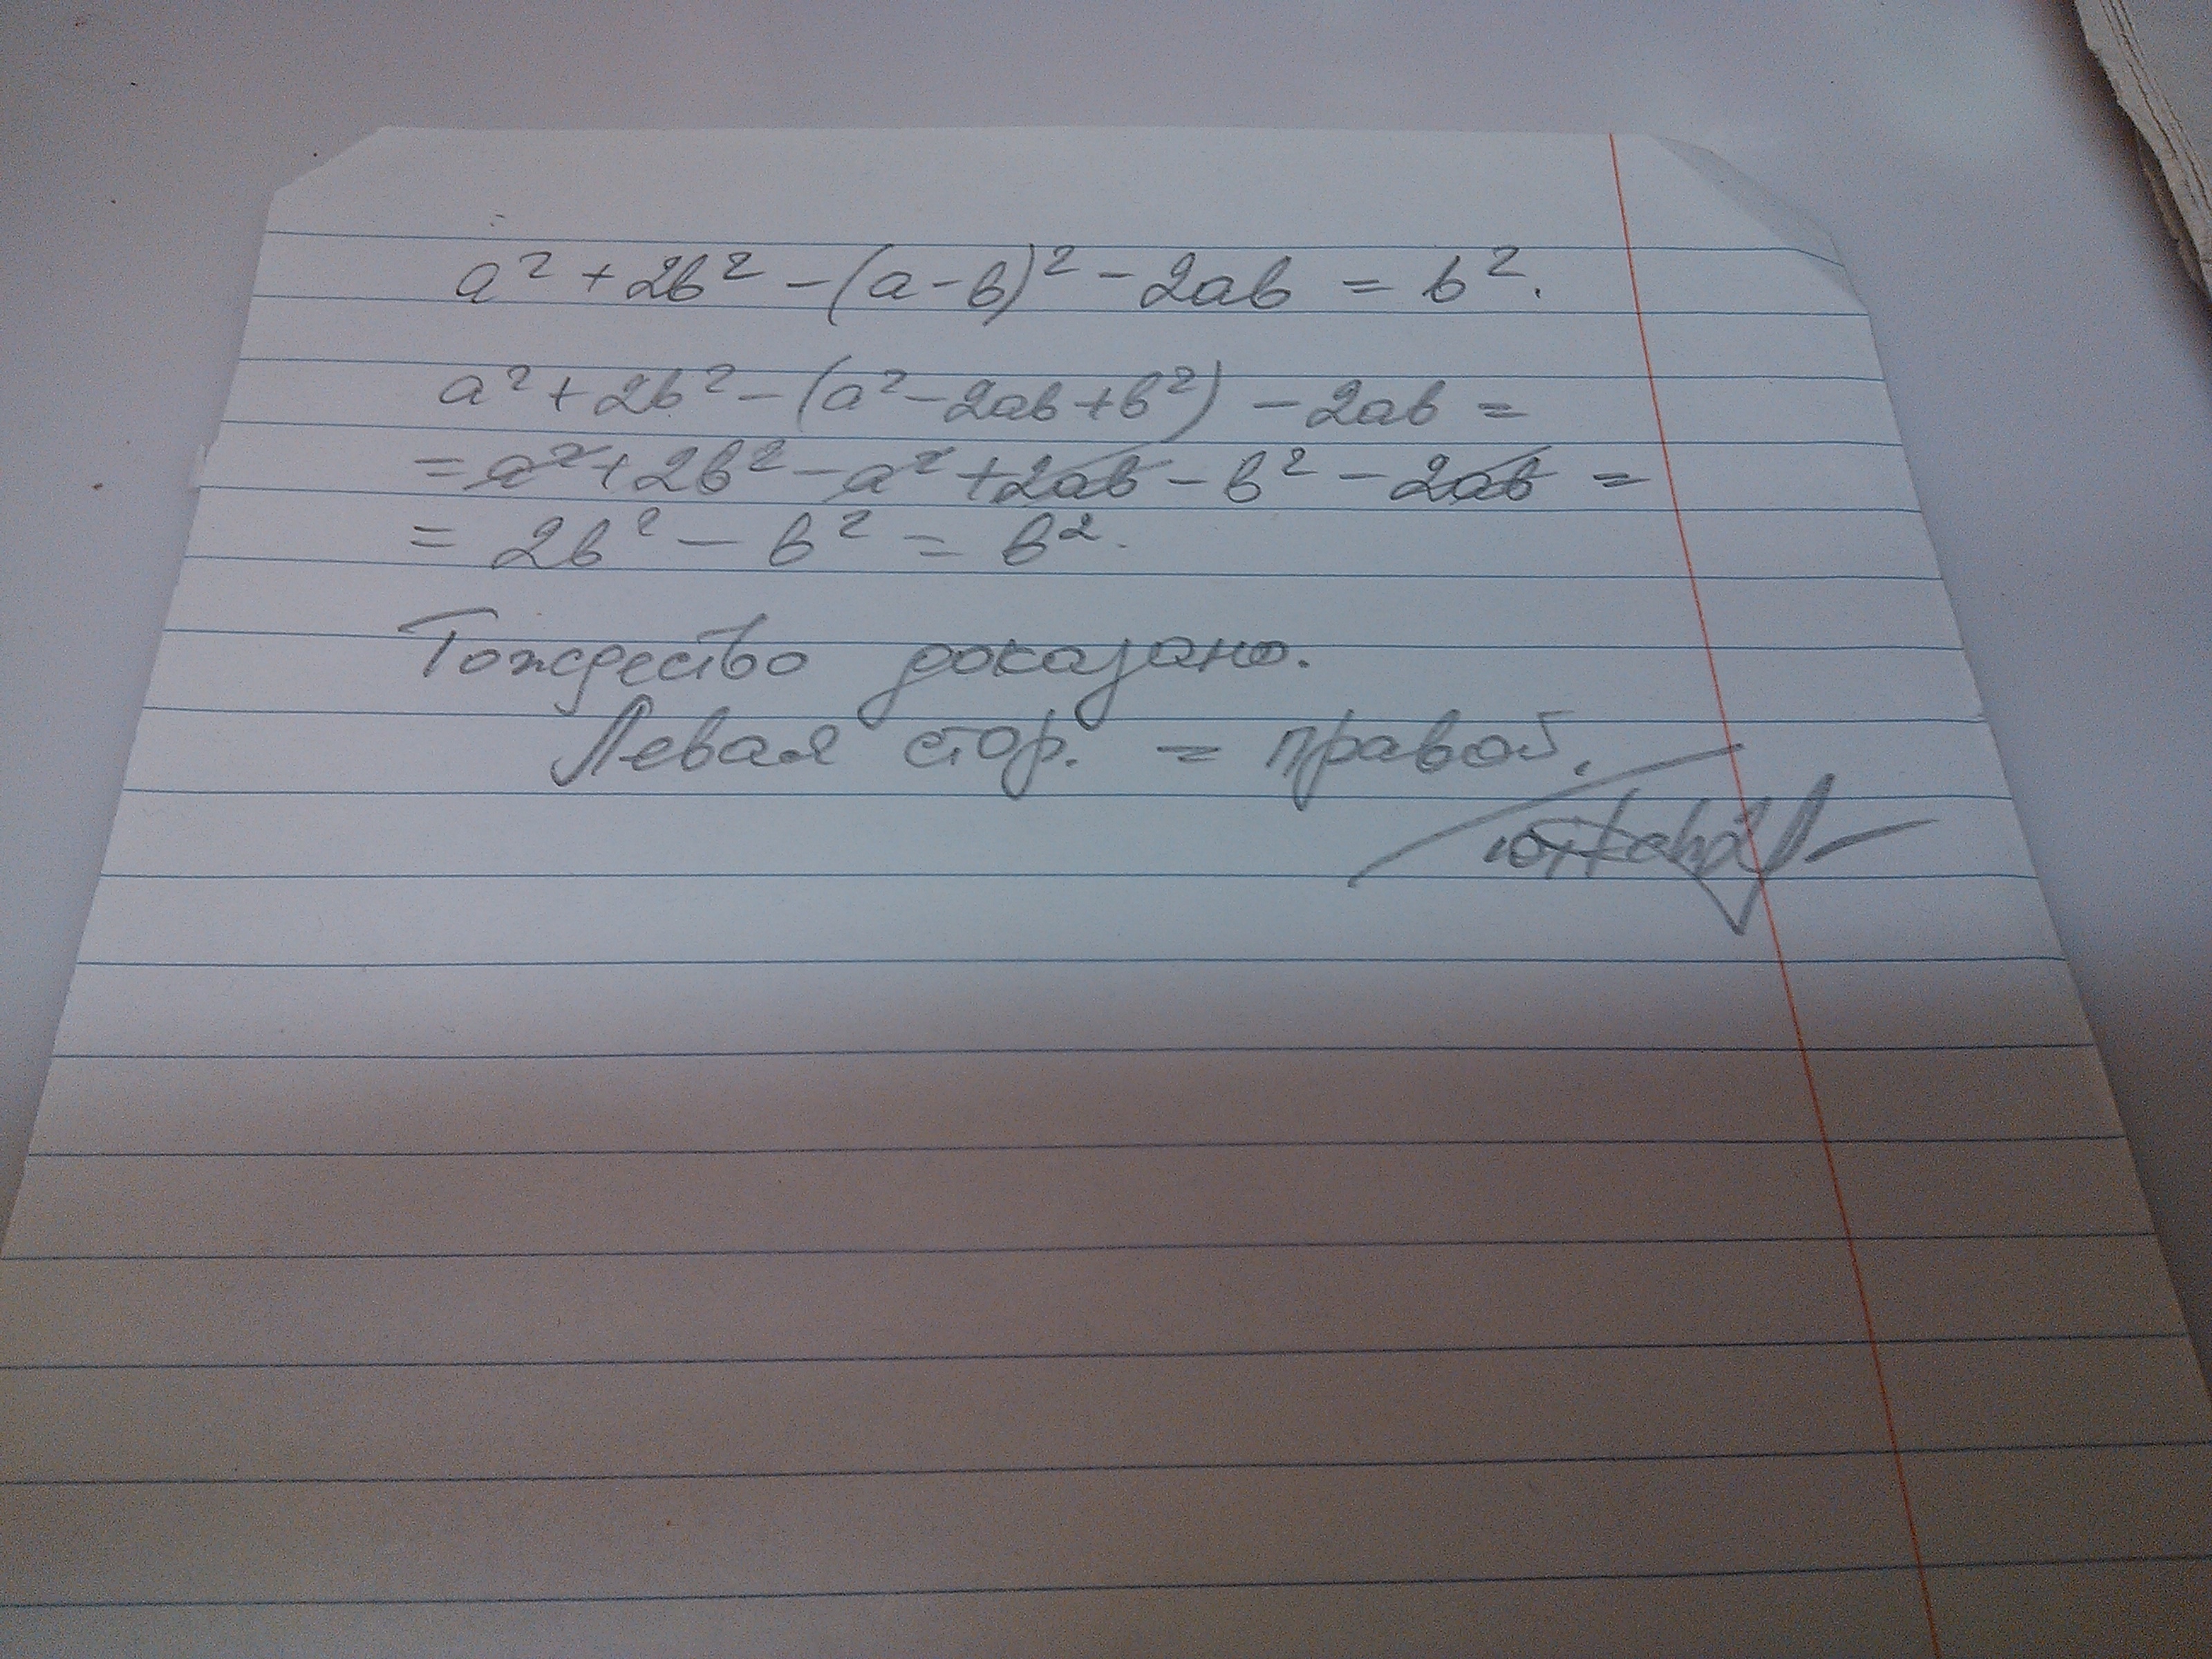 a² + 2b² - (a - b)² - 2ab = b².
a² + 2b² - (a² - 2ab + b²) - 2ab =
= a² + 2b² - a² + 2ab - b² - 2ab =
= 2b² - b² = b².
Тождество доказано.
Левая стор. = правой.